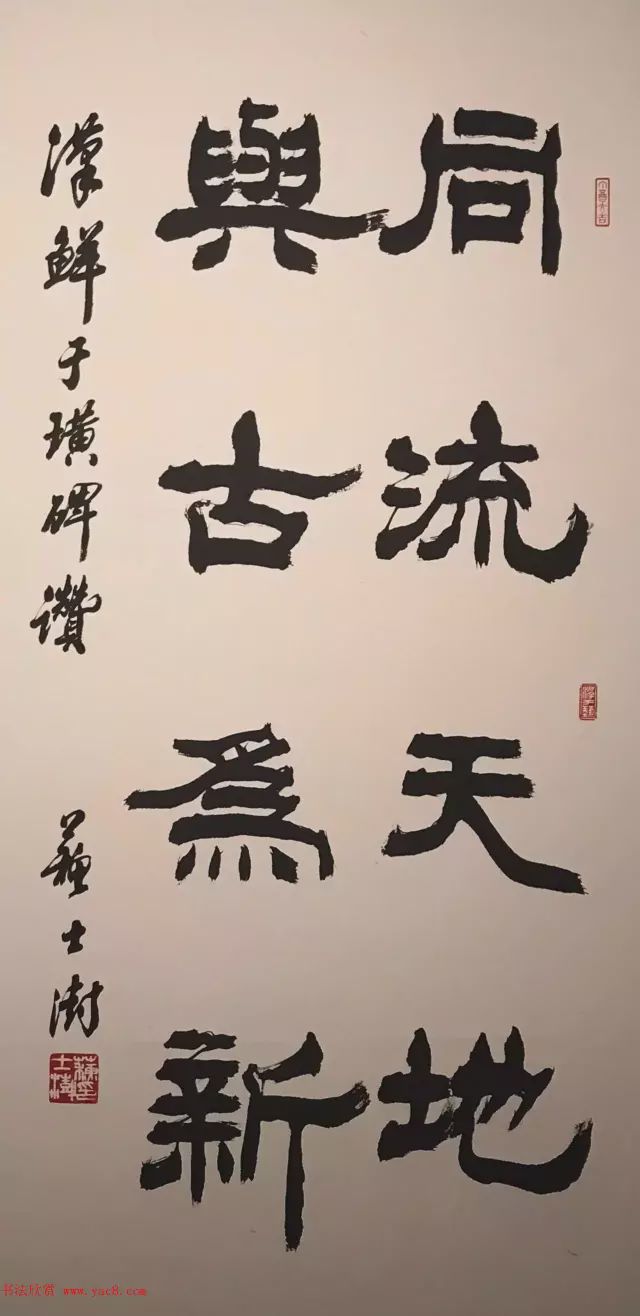 同流天地
與古爲新
漢鮮于璜碑讚 蘇士澍
书法欣赏 www.yac8.com